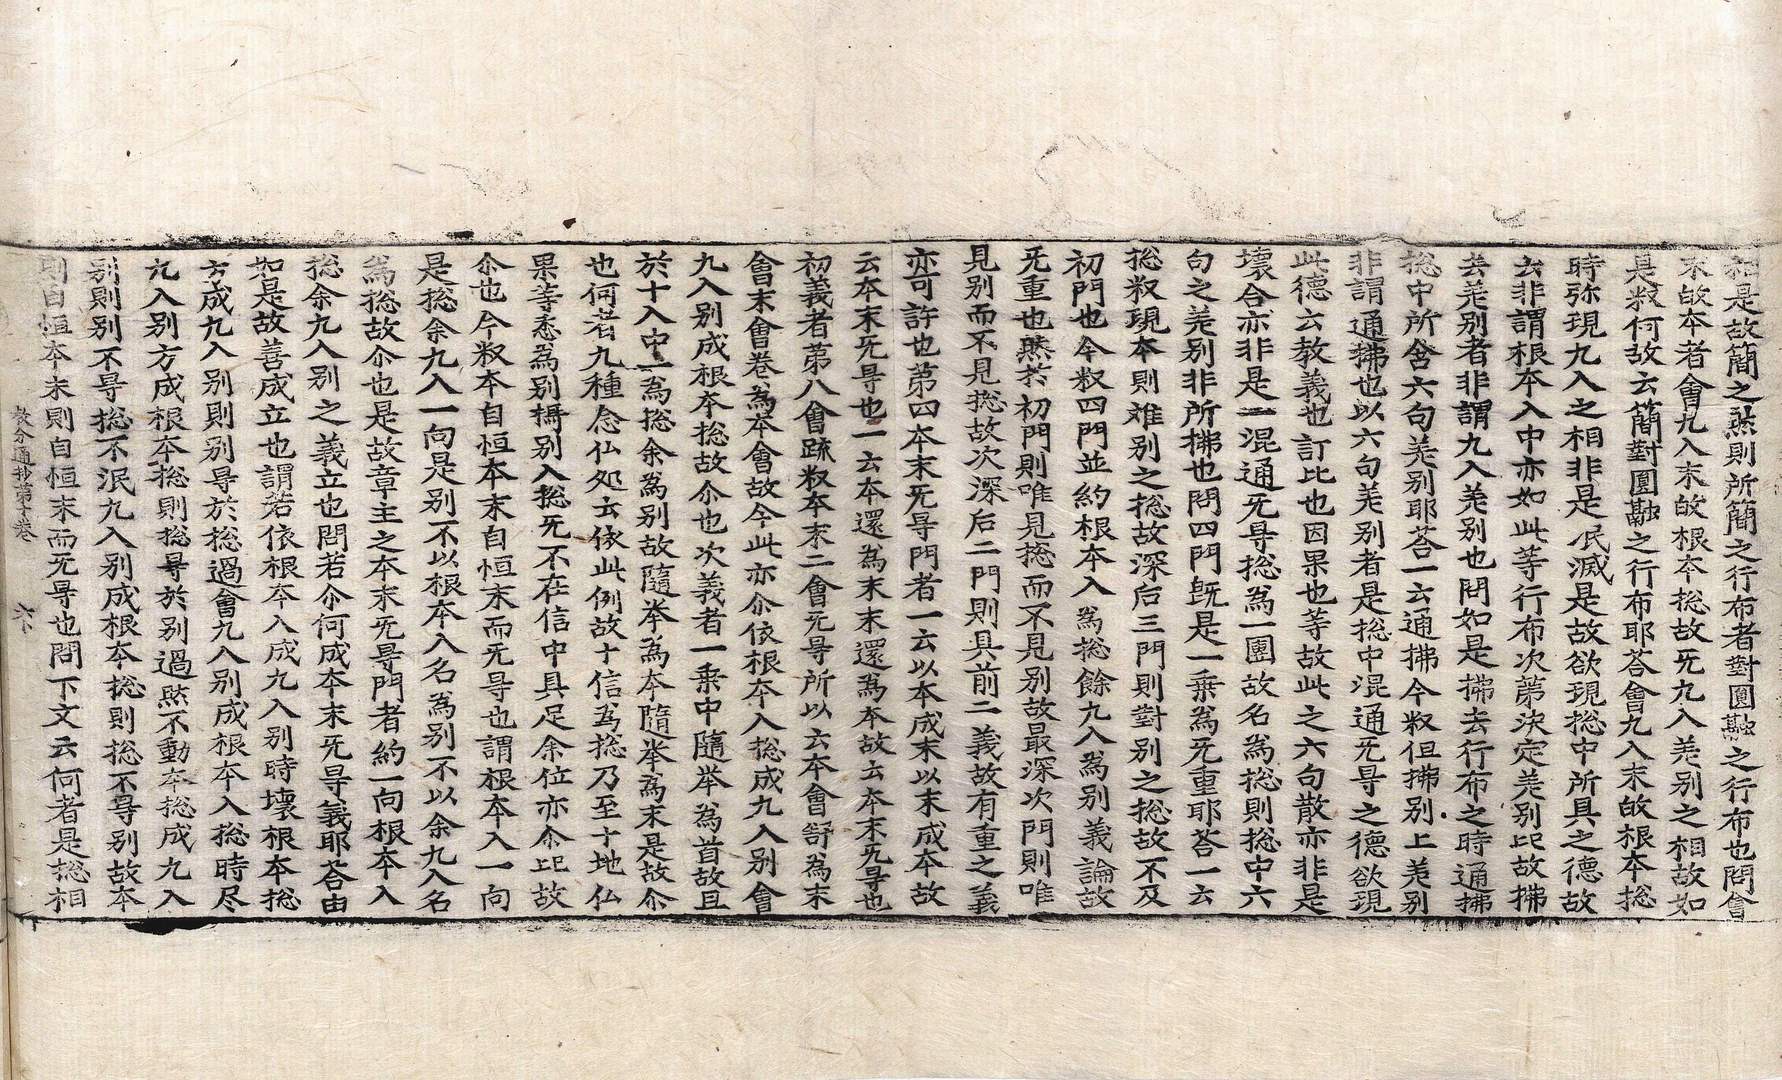 相是故簡之然則所簡之行布者對圓融之行布也問會
末故本者會九入末故根本捴故旡九入差别之相故如
是釈何故云簡對圓融之行布耶荅會九入末故根本捴
時弥現九入之相非是泯滅是故欲現捴中所具之德故
云非謂根本入中亦如此等行布次第決定差别比故拂
去差别者非謂九入差别也問如是拂去行布之時通拂
捴中所含六句差别耶荅一云通拂今釈但拂别上差别
非謂通拂也以六句差别者是捴中混通旡㝵之德欲現
此德云教義也訂比也因果也等故此之六句散亦非是
壞合亦非是一混通旡㝵捴為一團故名為捴則捴中六
句之差别非所拂也問四門旣是一乗為旡重耶荅一云
捴釈現本則难别之捴故深后三門則對别之捴故不及
初門也今釈四門並約根本入為捴餘九入為别義論故
旡重也然於初門則唯見捴而不見别故最深次門則唯
見别而不見捴故次深后二門則具前二義故有重之義
亦可許也第四本末旡㝵門者一云以本成末以末成本故
云本末旡㝵也一云本還為末末還為本故云本末旡㝵也
初義者第八會䟽釈本末二會旡㝵所以云本會舒為末
會末會卷為本會故今此亦尒依根本入捴成九入别會
九入别成根本捴故尒也次義者一乗中隨举為首故且
於十入中一為捴余為别故隨举為本隨举為末是故尒
也何者九種念仏処云依此例故十信為捴乃至十地仏
果等悉為别攝别入捴旡不在信中具足余位亦尒比故
尒也今釈本自恒本末自恒末而旡㝵也謂根本入一向
是捴余九入一向是别不以根本入名為别不以余九入名
為捴故尒也是故章主之本末旡㝵門者約一向根本入
捴余九入别之義立也問若尒何成本末旡㝵義耶荅由
如是故善成立也謂若依根本入成九入别時壞根本捴
方成九入别則别㝵於捴過會九入别成根本入捴時尽
九入别方成根本捴則捴㝵於别過然不動本捴成九入
别則别不㝵捴不泯九入别成根本捴則捴不㝵别故本
則自恒本末則自恒末而旡㝵也問下文云何者是捴相
教分通抄第十卷　六下